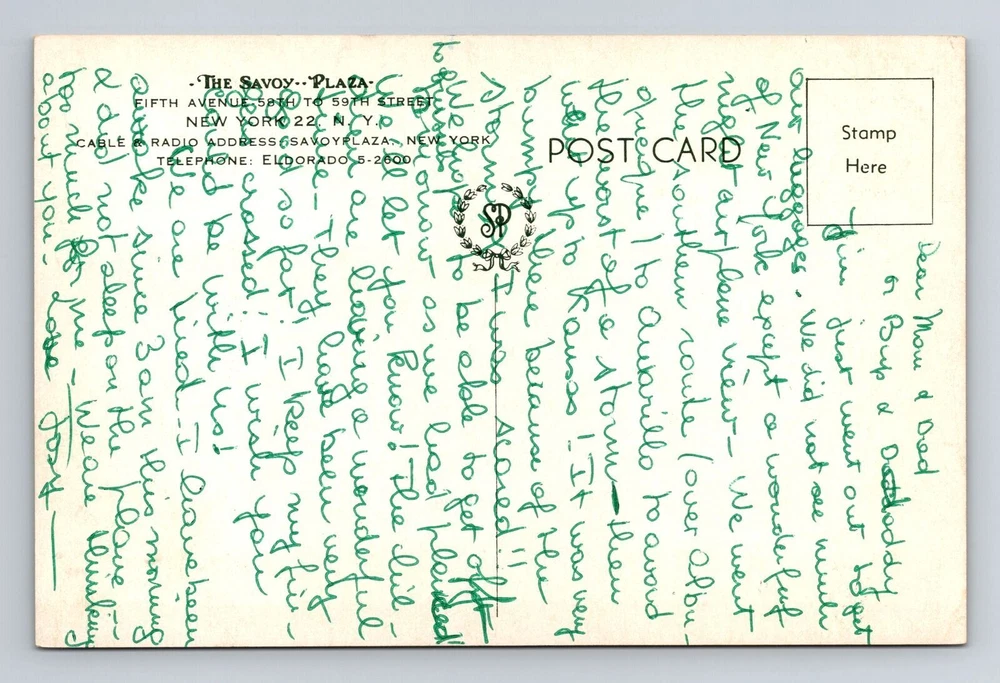 -The Savoy--Plaza-
FIFTH AVENUE 58TH TO 59TH STREET
NEW YORK 22, N. Y.
CABLE & RADIO ADDRESS: SAVOYPLAZA, NEW YORK
TELEPHONE: ELDORADO 5-2600
POST CARD
Stamp
Here
SP
Dear Mom & Dad
or Bup & Daddaddy
Jim just went out to get
our luggage. We did not see much
of New York except a wonderful
night airplane view - We went
the southern route (over Albu-
querque) to Amarillo to avoid
the worst of a storm - then
up to Kansas! It was very
bumpy there because of the
storm - I was scared!!
to be able to get off
as we had planned!
let you know! The chil-
dren are having a wonderful
time - They have been very
good so far! I keep my fin-
gers crossed! I wish you
could be with us!
We are tired - I have been
awake since 3 am this morning
& did not sleep on the plane -
too much for me - We are thinking
about you. Love